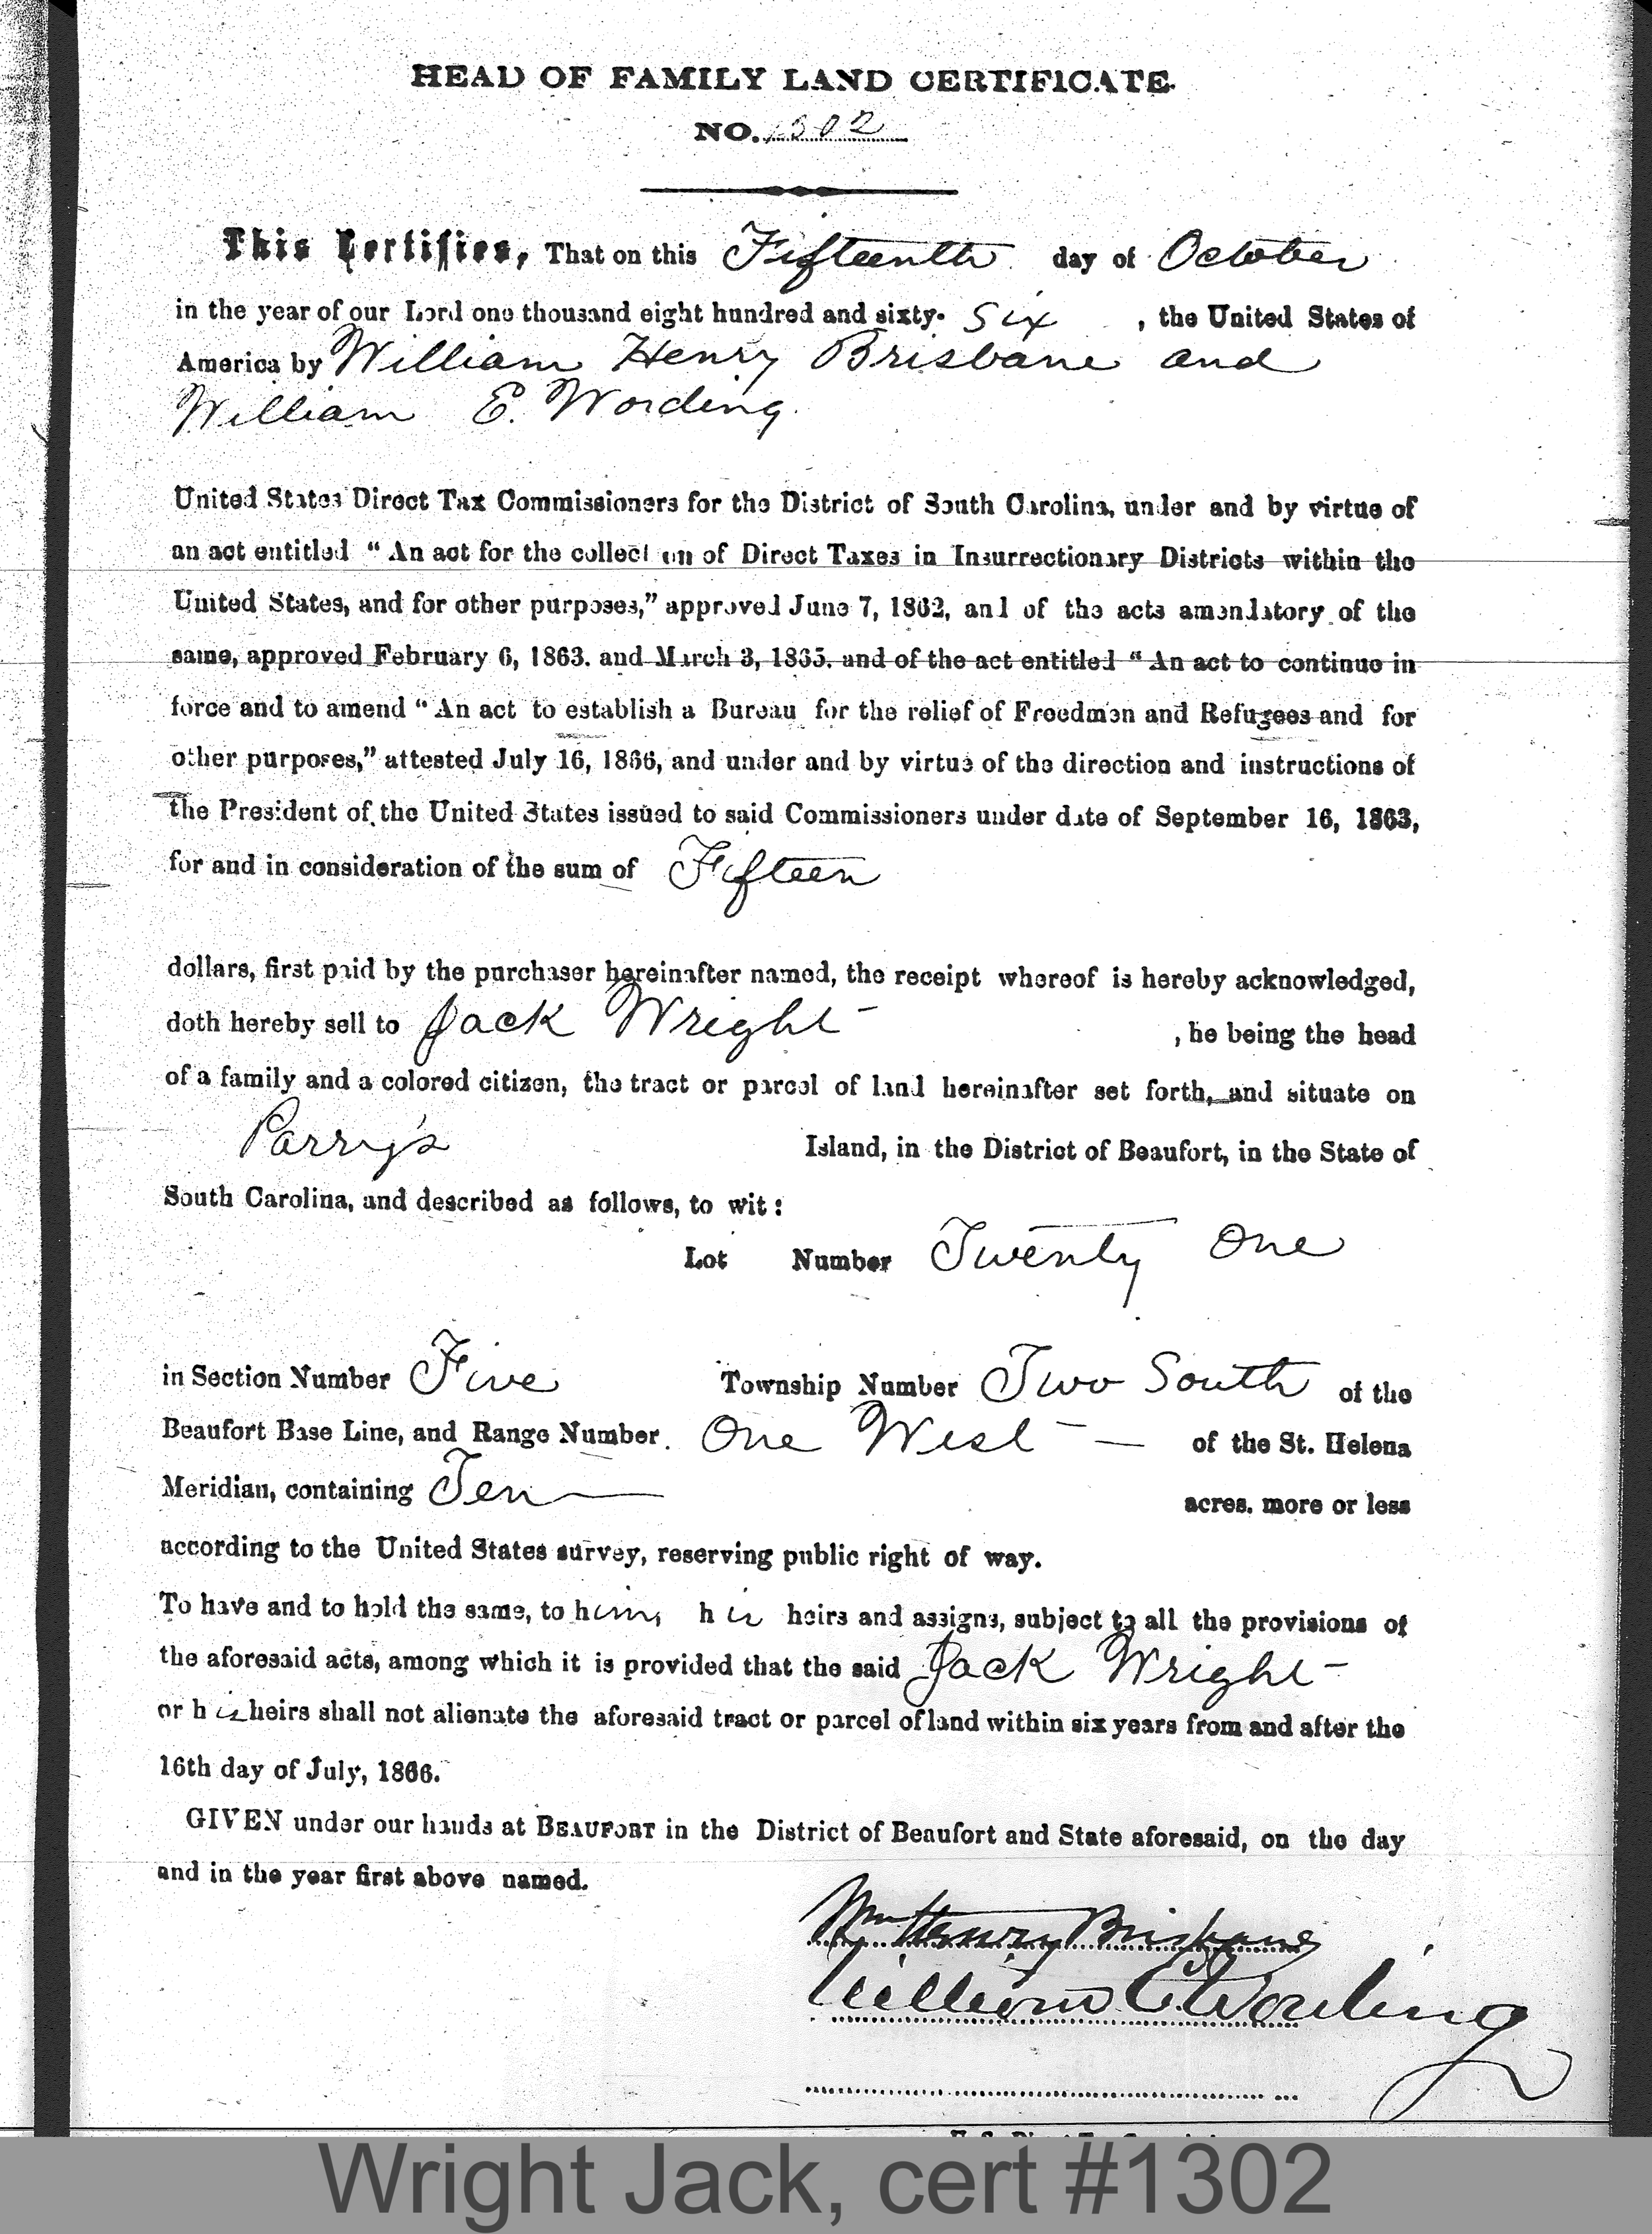 HEAD OF FAMILY LAND CERTIFICATE.
NO. 1302
This Certifies, That on this Fifteenth day of October
in the year of our Lord one thousand eight hundred and sixty- six , the United States of
America by William Henry Brisbane and
William E. Wording.
United States Direct Tax Commissioners for the District of South Carolina, under and by virtue of
an act entitled “ An act for the collection of Direct Taxes in Insurrectionary Districts within the
United States, and for other purposes,” approved June 7, 1862, and of the acts amendatory of the
same, approved February 6, 1863. and March 3, 1865. and of the act entitled “ An act to continue in
force and to amend “ An act to establish a Bureau for the relief of Freedmen and Refugees and for
other purposes,” attested July 16, 1866, and under and by virtue of the direction and instructions of
the President of the United States issued to said Commissioners under date of September 16, 1863,
for and in consideration of the sum of Fifteen
dollars, first paid by the purchaser hereinafter named, the receipt whereof is hereby acknowledged,
doth hereby sell to Jack Wright , he being the head
of a family and a colored citizen, the tract or parcel of land hereinafter set forth, and situate on
Parry's Island, in the District of Beaufort, in the State of
South Carolina, and described as follows, to wit :
Lot Number Twenty One
in Section Number Five Township Number Two South of the
Beaufort Base Line, and Range Number. One West of the St. Helena
Meridian, containing Ten acres. more or less
according to the United States survey, reserving public right of way.
To have and to hold the same, to him, his heirs and assigns, subject to all the provisions of
the aforesaid acts, among which it is provided that the said Jack Wright
or his heirs shall not alienate the aforesaid tract or parcel of land within six years from and after the
16th day of July, 1866.
GIVEN under our hands at BEAUFORT in the District of Beaufort and State aforesaid, on the day
and in the year first above named.
Wm Henry Brisbane
William E. Wording
Wright Jack, cert #1302